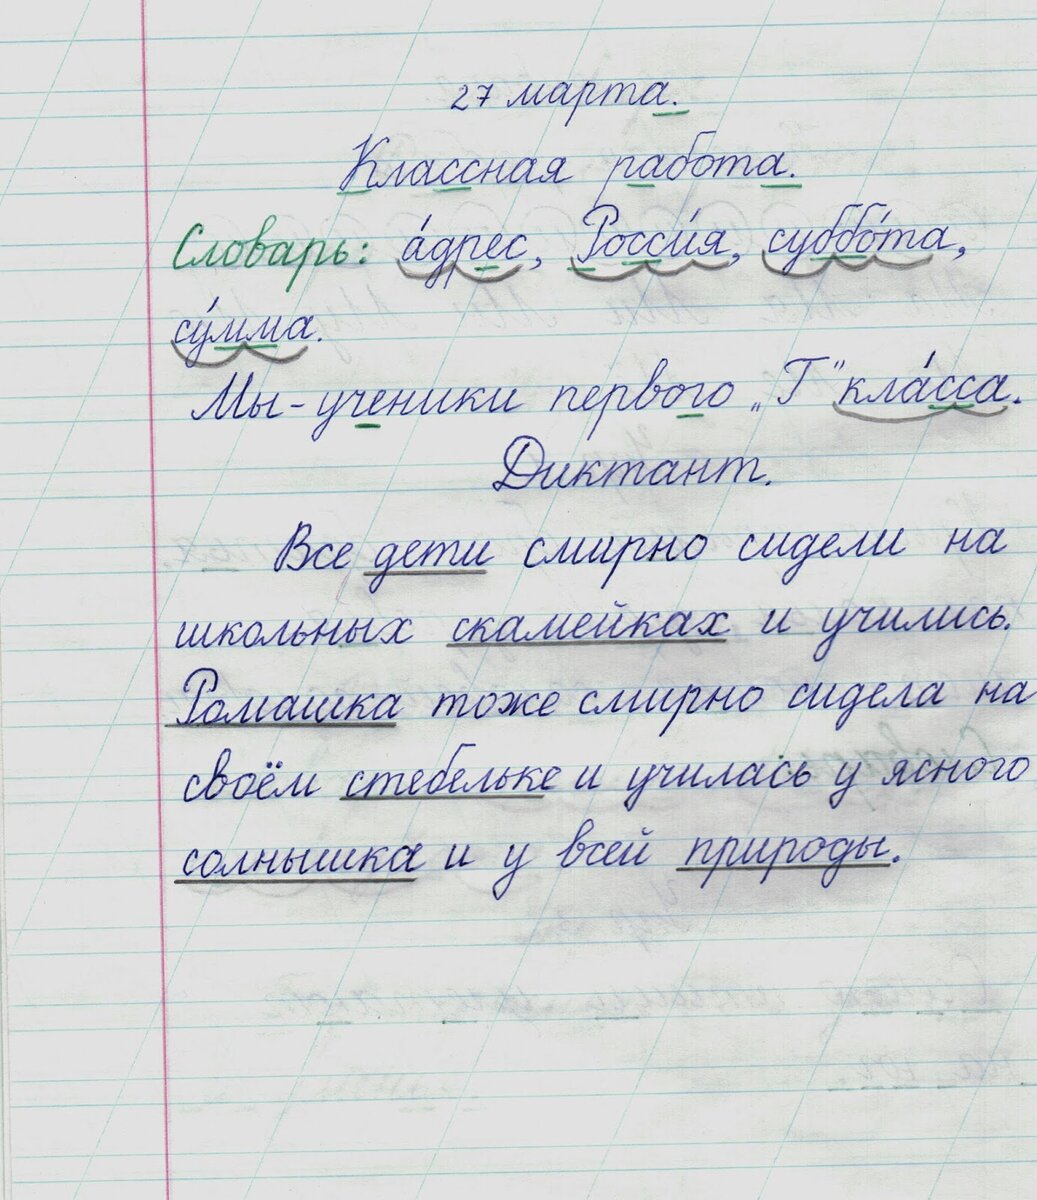 27 марта.
Классная работа.
Словарь: а́дрес, Росси́я, суббо́та,
су́мма.
Мы - ученики первого „Г" кла́сса.
Диктант.
Все дети смирно сидели на
школьных скамейках и учились.
Ромашка тоже смирно сидела на
своём стебельке и училась у ясного
солнышка и у всей природы.